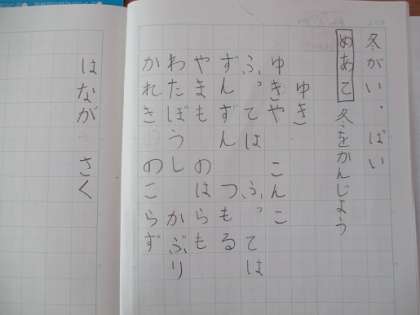 冬がいっぱい
めあて 冬をかんじよう
ゆき
ゆきや こんこ
ふってはふってはずんずん つもる
やまも のはらも
わたぼうし かぶり
かれき のこらず
はなが さく